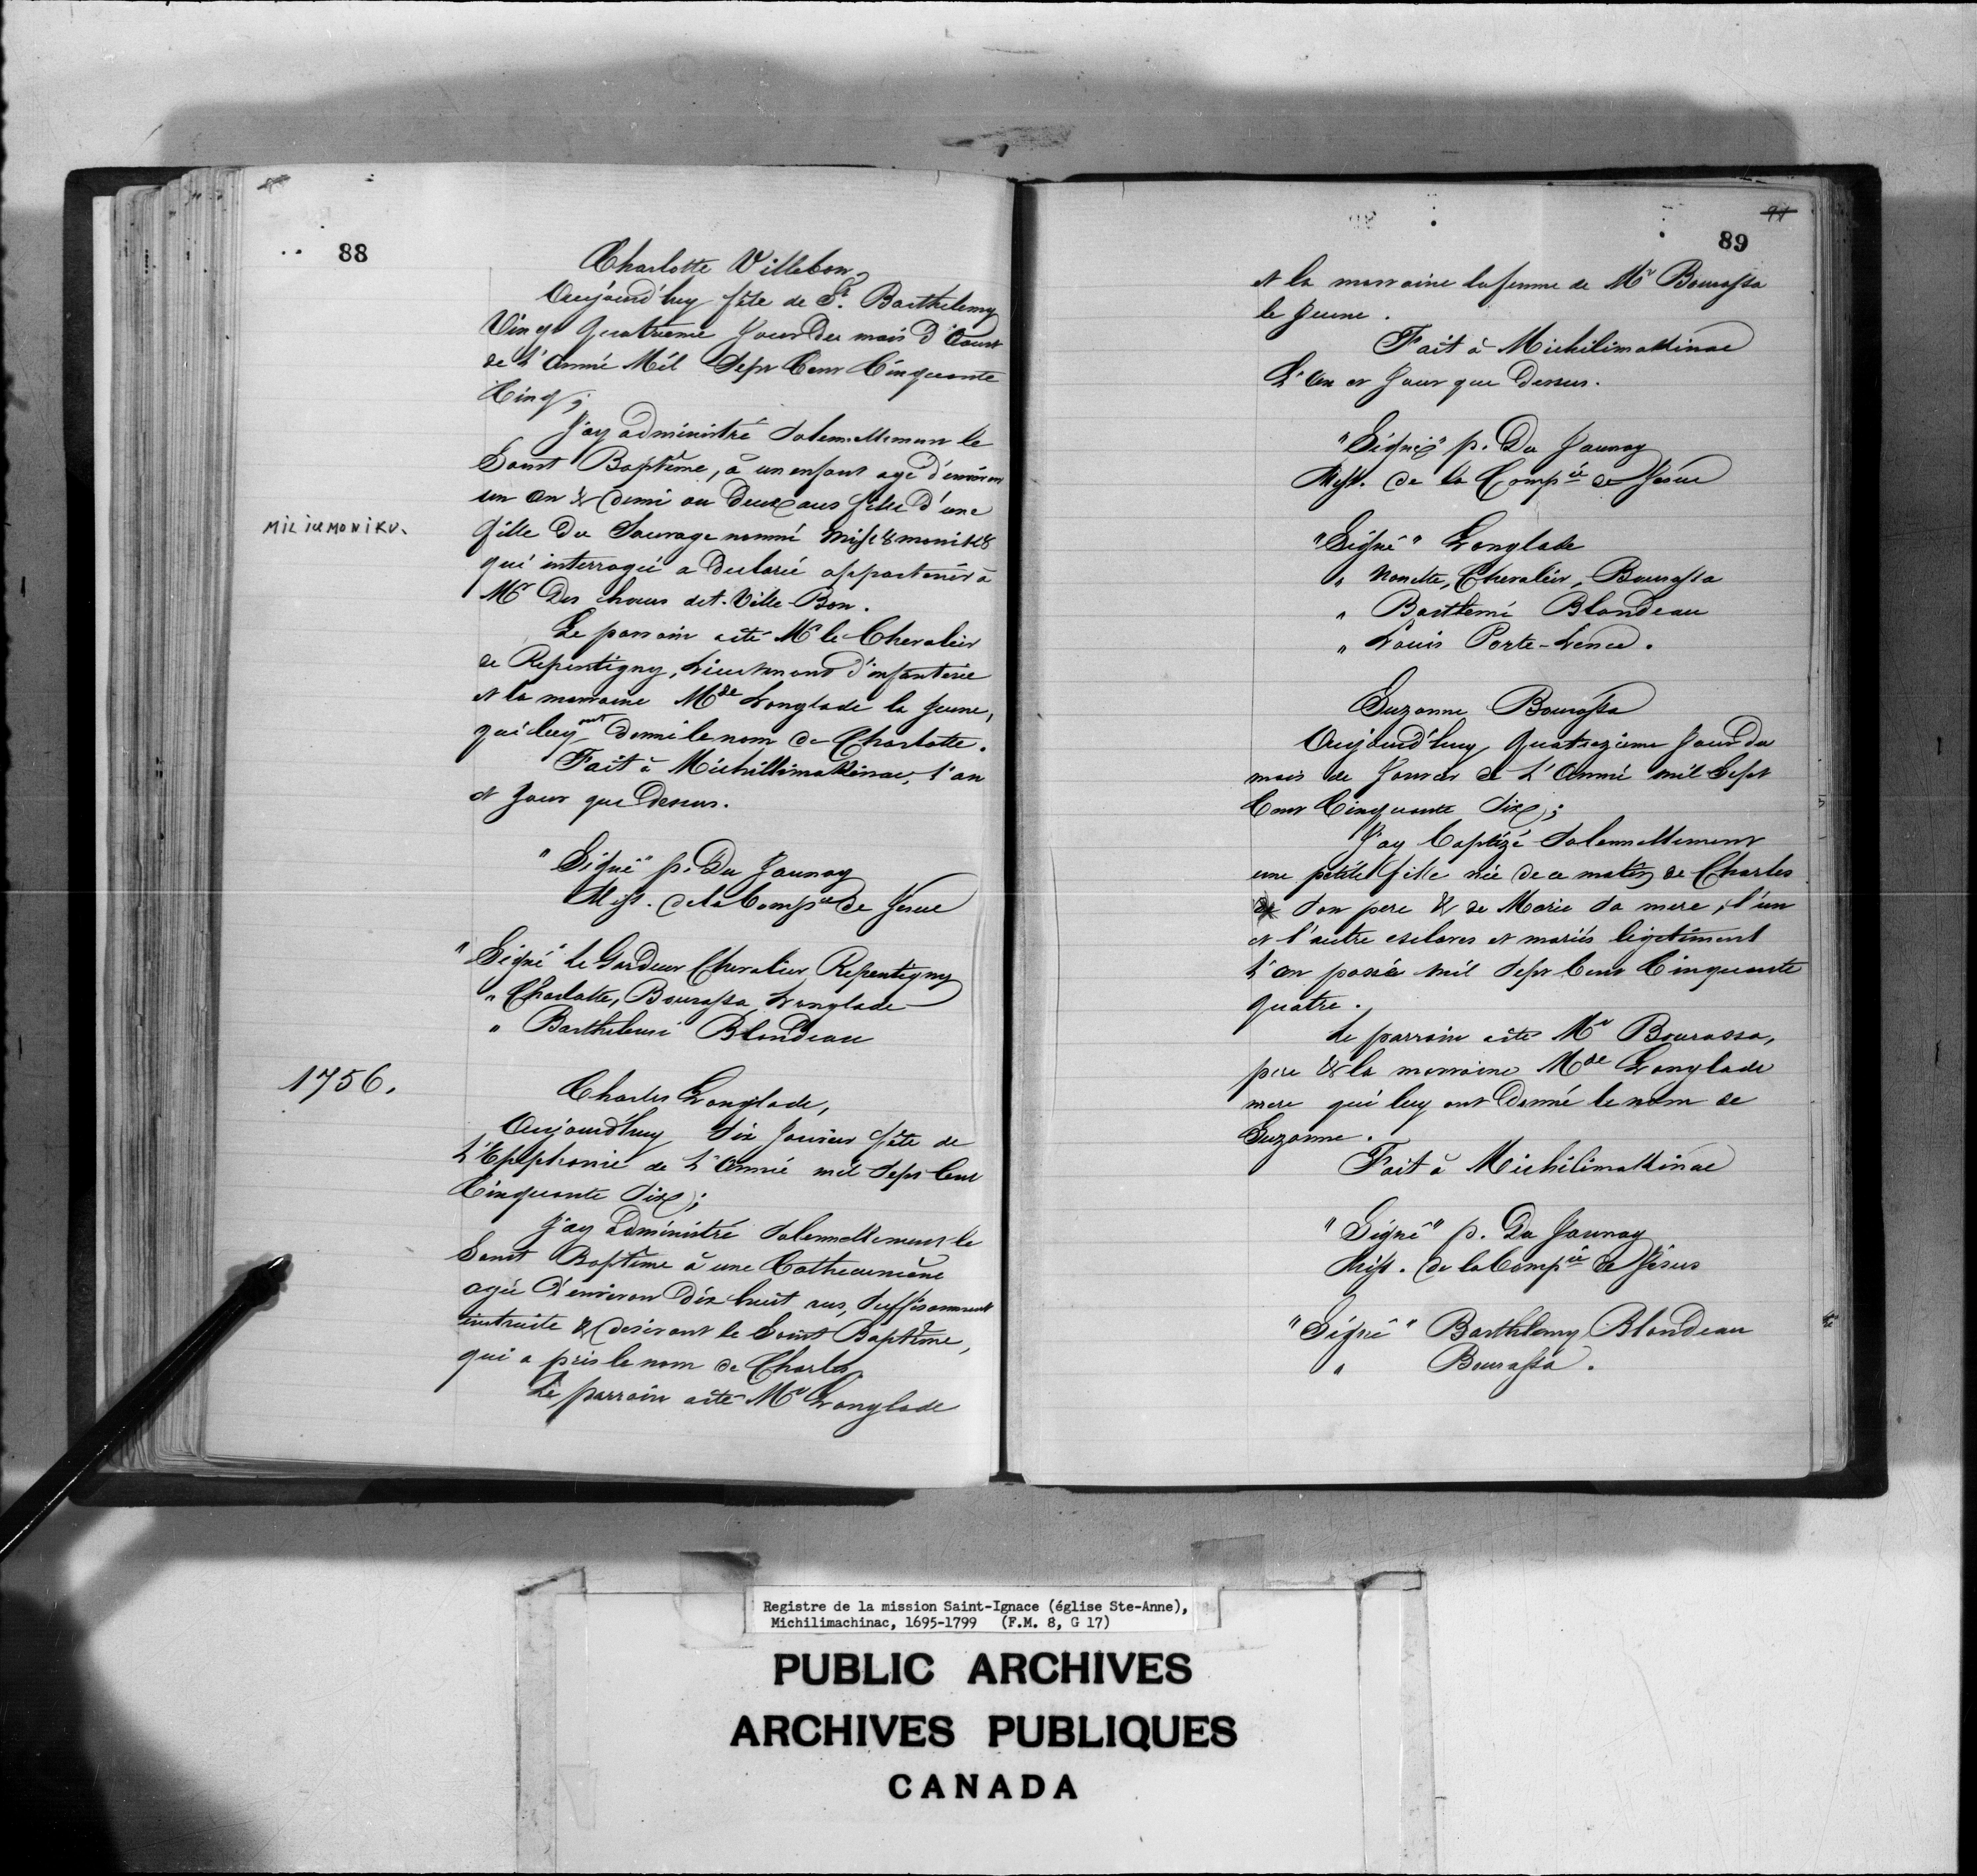 88
Charlotte Villebon
Aujourd'huy fête de St. Barthelemy
Vingt quatrieme Jour du mois d'Aout
de L'Année Mil Sept Cent Cinquante
Cinq;
J'ay administré Solennellement le
Saint Baptême, à un enfant agé d'environ
un an & demi ou deux ans fille d'une
MILICEMONIKU.
fille du Sauvage nommé
qui interrogée a declaré appartenir à
Mr Des choux det. Ville-Bon.
Le parrain a été Mr le Chevalier
de Repentigny, Lieutenant d'infanterie
et la marraine Mde Langlade la Jeune,
qui luy ont donné le nom de Charlotte.
Fait à Michillimakinac, l'an
et Jour que dessus.
"Signé" p. Du Jaunay
Miss. de la Compie de Jesus
"Signé Le Gardeur Chevalier Repentigny
" Charlotte, Bourassa Langlade
" Barthelemi Blondeau
1756.
Charles Langlade,
Aujourd'huy Six Janvier fête de
L'Epiphanie de L'Année mil Sept Cent
Cinquante Six;
J'ay administré Solennellement le
Saint Baptême à une Cathecumène
agée d'environ dix huit ans, Suffisamment
instruite & desirant le Saint Baptême,
qui a pris le nom de Charles
Le parrain a été Mr Langlade
91
89
et la marraine la femme de Mr Bourassa
le Jeune.
Fait à Michilimakinac
L'An et Jour que Dessus.
"Signé" p. Du Jaunay
Miss. de la Compie de Jésus
"Signé" Langlade
" Nanette, Chevalier, Bourassa
" Bartlemi Blondeau
" Louis Porte-Lence.
Suzanne Bourassa
Aujourd'huy Quatrezieme Jour du
mois de Janvier de L'Année mil Sept
Cent Cinquante Six;
J'ay baptizé Solennellement
une petite fille née de ce matin de Charles
Son pere & de Marie Sa mere, l'un
et l'autre esclaves et mariés légitiment
L'an passée mil Sept Cent Cinquante
quatre.
Le parrain a été Mr Bourassa,
pere & la marraine Mde Langlade
mere qui luy ont Donné le nom de
Suzanne.
Fait à Michilimakinac
"Signé" p. Du Jaunay
Miss. de la Compie de Jésus
"Signé" Barthlemy Blondeau
" Bourassa.
Registre de la mission Saint-Ignace (église Ste-Anne),
Michilimachinac, 1695-1799 (F.M. 8, G 17)
PUBLIC ARCHIVES
ARCHIVES PUBLIQUES
CANADA